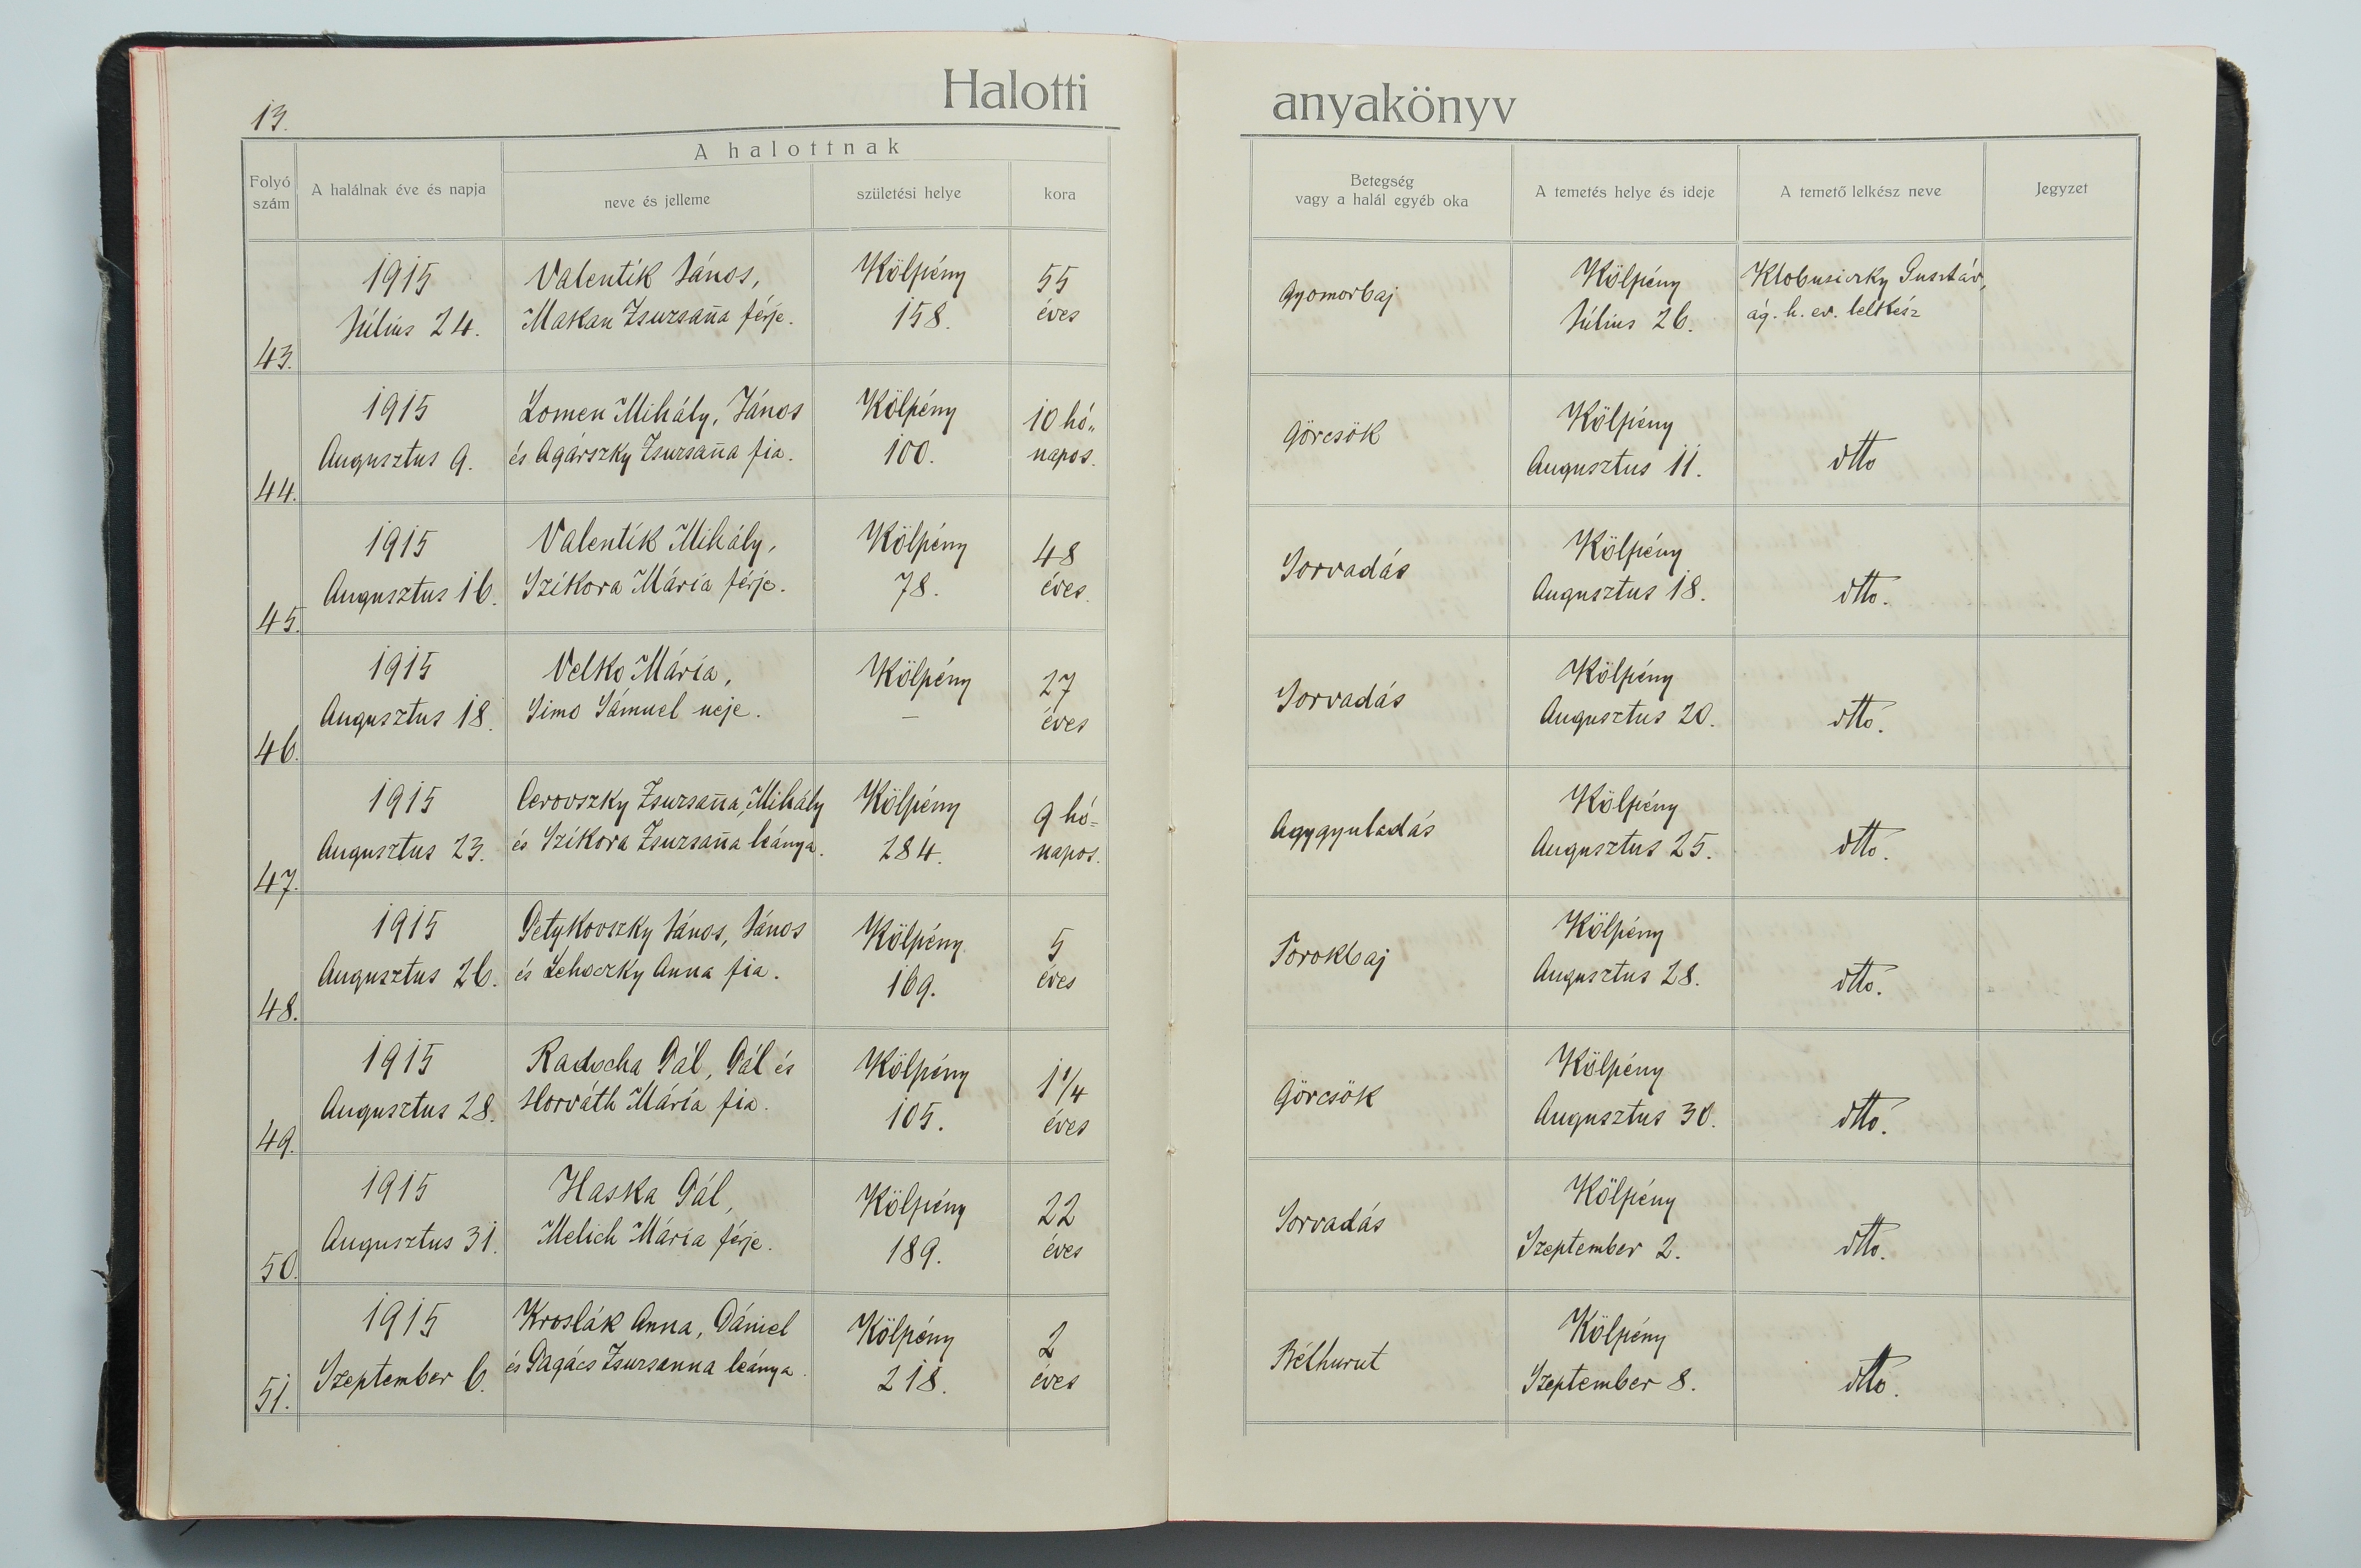 13.
Halotti
anyakönyv
Folyó szám
A halálnak éve és napja
A halottnak
neve és jelleme
születési helye
kora
Betegség
vagy a halál egyéb oka
A temetés helye és ideje
A temető lelkész neve
Jegyzet
43.
1915
Július 24.
Valentik János,
Makan Zsuzsan̄a férje.
Kölpény
158.
55
éves
Gyomorbaj
Kölpény
Július 26.
Klobusiczky Gusztáv,
ág. h. ev. lelkész
44.
1915
Augusztus 9.
Lomen Mihály, János
és Agárszky Zsuzsan̄a fia.
Kölpény
100.
10 hó„
napos.
Görcsök
Kölpény
Augusztus 11.
dtto
45.
1915
Augusztus 16.
Valentik Mihály,
Szikora Mária férje.
Kölpény
78.
48
éves.
Sorvadás
Kölpény
Augusztus 18.
dtto.
46.
1915
Augusztus 18.
Velko Mária,
Simo Sámuel neje.
Kölpény
—
27
éves
Sorvadás
Kölpény
Augusztus 20.
dtto.
47.
1915
Augusztus 23.
Cerovszky Zsuzsan̄a, Mihály
és Szikora Zsuzsan̄a leánya.
Kölpény
284.
9 hó=
napos.
Agygyuladás
Kölpény
Augusztus 25.
dtto.
48.
1915
Augusztus 26.
Petykovszky János, János
és Lehoczky Anna fia.
Kölpény
169.
5
éves
Torokbaj
Kölpény
Augusztus 28.
dtto.
49.
1915
Augusztus 28.
Radocha Pál, Pál és
Horváth Mária fia.
Kölpény
105.
1 1/4
éves
Görcsök
Kölpény
Augusztus 30.
dtto.
50.
1915
Augusztus 31.
Haska Pál,
Melich Mária férje.
Kölpény
189.
22
éves
Sorvadás
Kölpény
Szeptember 2.
dtto.
51.
1915
Szeptember 6.
Kroslák Anna, Dániel
és Pagács Zsuzsanna leánya.
Kölpény
218.
2
éves
Bélhurut
Kölpény
Szeptember 8.
dtto.